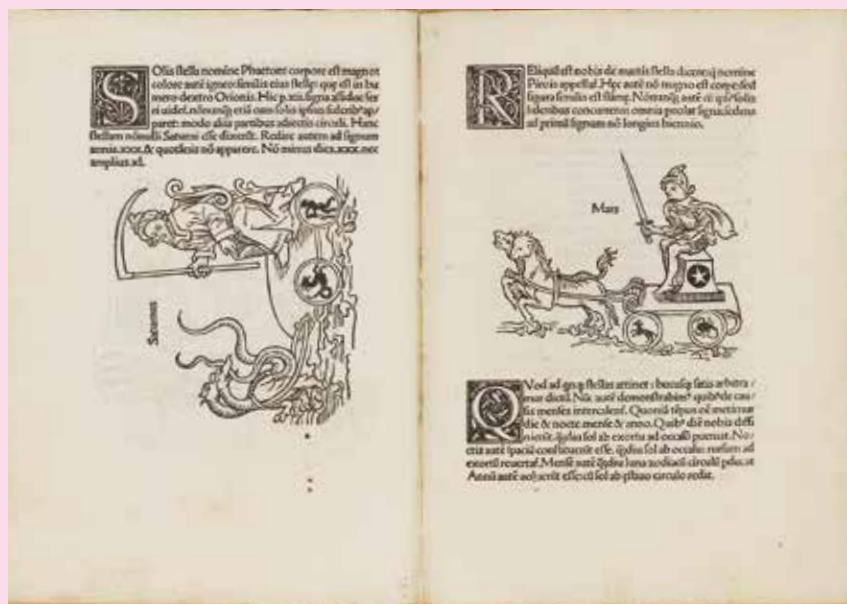 SOlis stella nomine Phaeton: corpore est magno:
colore autē igneo: similis eius stellę: quę est in hu
mero dextro Orionis. Hic p .xii. signa assidue fer
ri uidet̃. nōnunq̃; etiā cum solis ipsius siderib⁹ ap/
paret: modo aliis partibus adiectis circuli. Hanc
stellam nōnulli Saturni esse dixerūt. Redire autem ad signum
annis .xxx. & quotānis nō apparere. Nō minus dies .xxx. nec
amplius ad.
Saturnus
REliquū est nobis de martis stella dicere: q̃ nomine
Pirois appellat̃. Hęc autē nō magno est corpe: sed
figura similis est flāmę. Nōnunq̃;
signa: iedens
ad primū signum nō longius biennio.
Mars
QVod ad qnq; stellas attinet: hucusq; satis arbitra/
mur dictū. Nūc autē demonstrabim⁹ quib⁹ de cau/
sis menses intercalent̃. Quoniā tēpus oē metimur
die & nocte mense & anno. Quib⁹ diē nobis diffi
nierūt: q̃diu sol ab exortu ad occasū pueniat. No/
ctis autē spaciū constituerūt esse, q̃diu sol ab occasu: rursum ad
exortū reuertat̃. Mensē autē q̃diu luna zodiacū circulū
Annū autē uoluerūt esse: cū sol ab circulo redit.